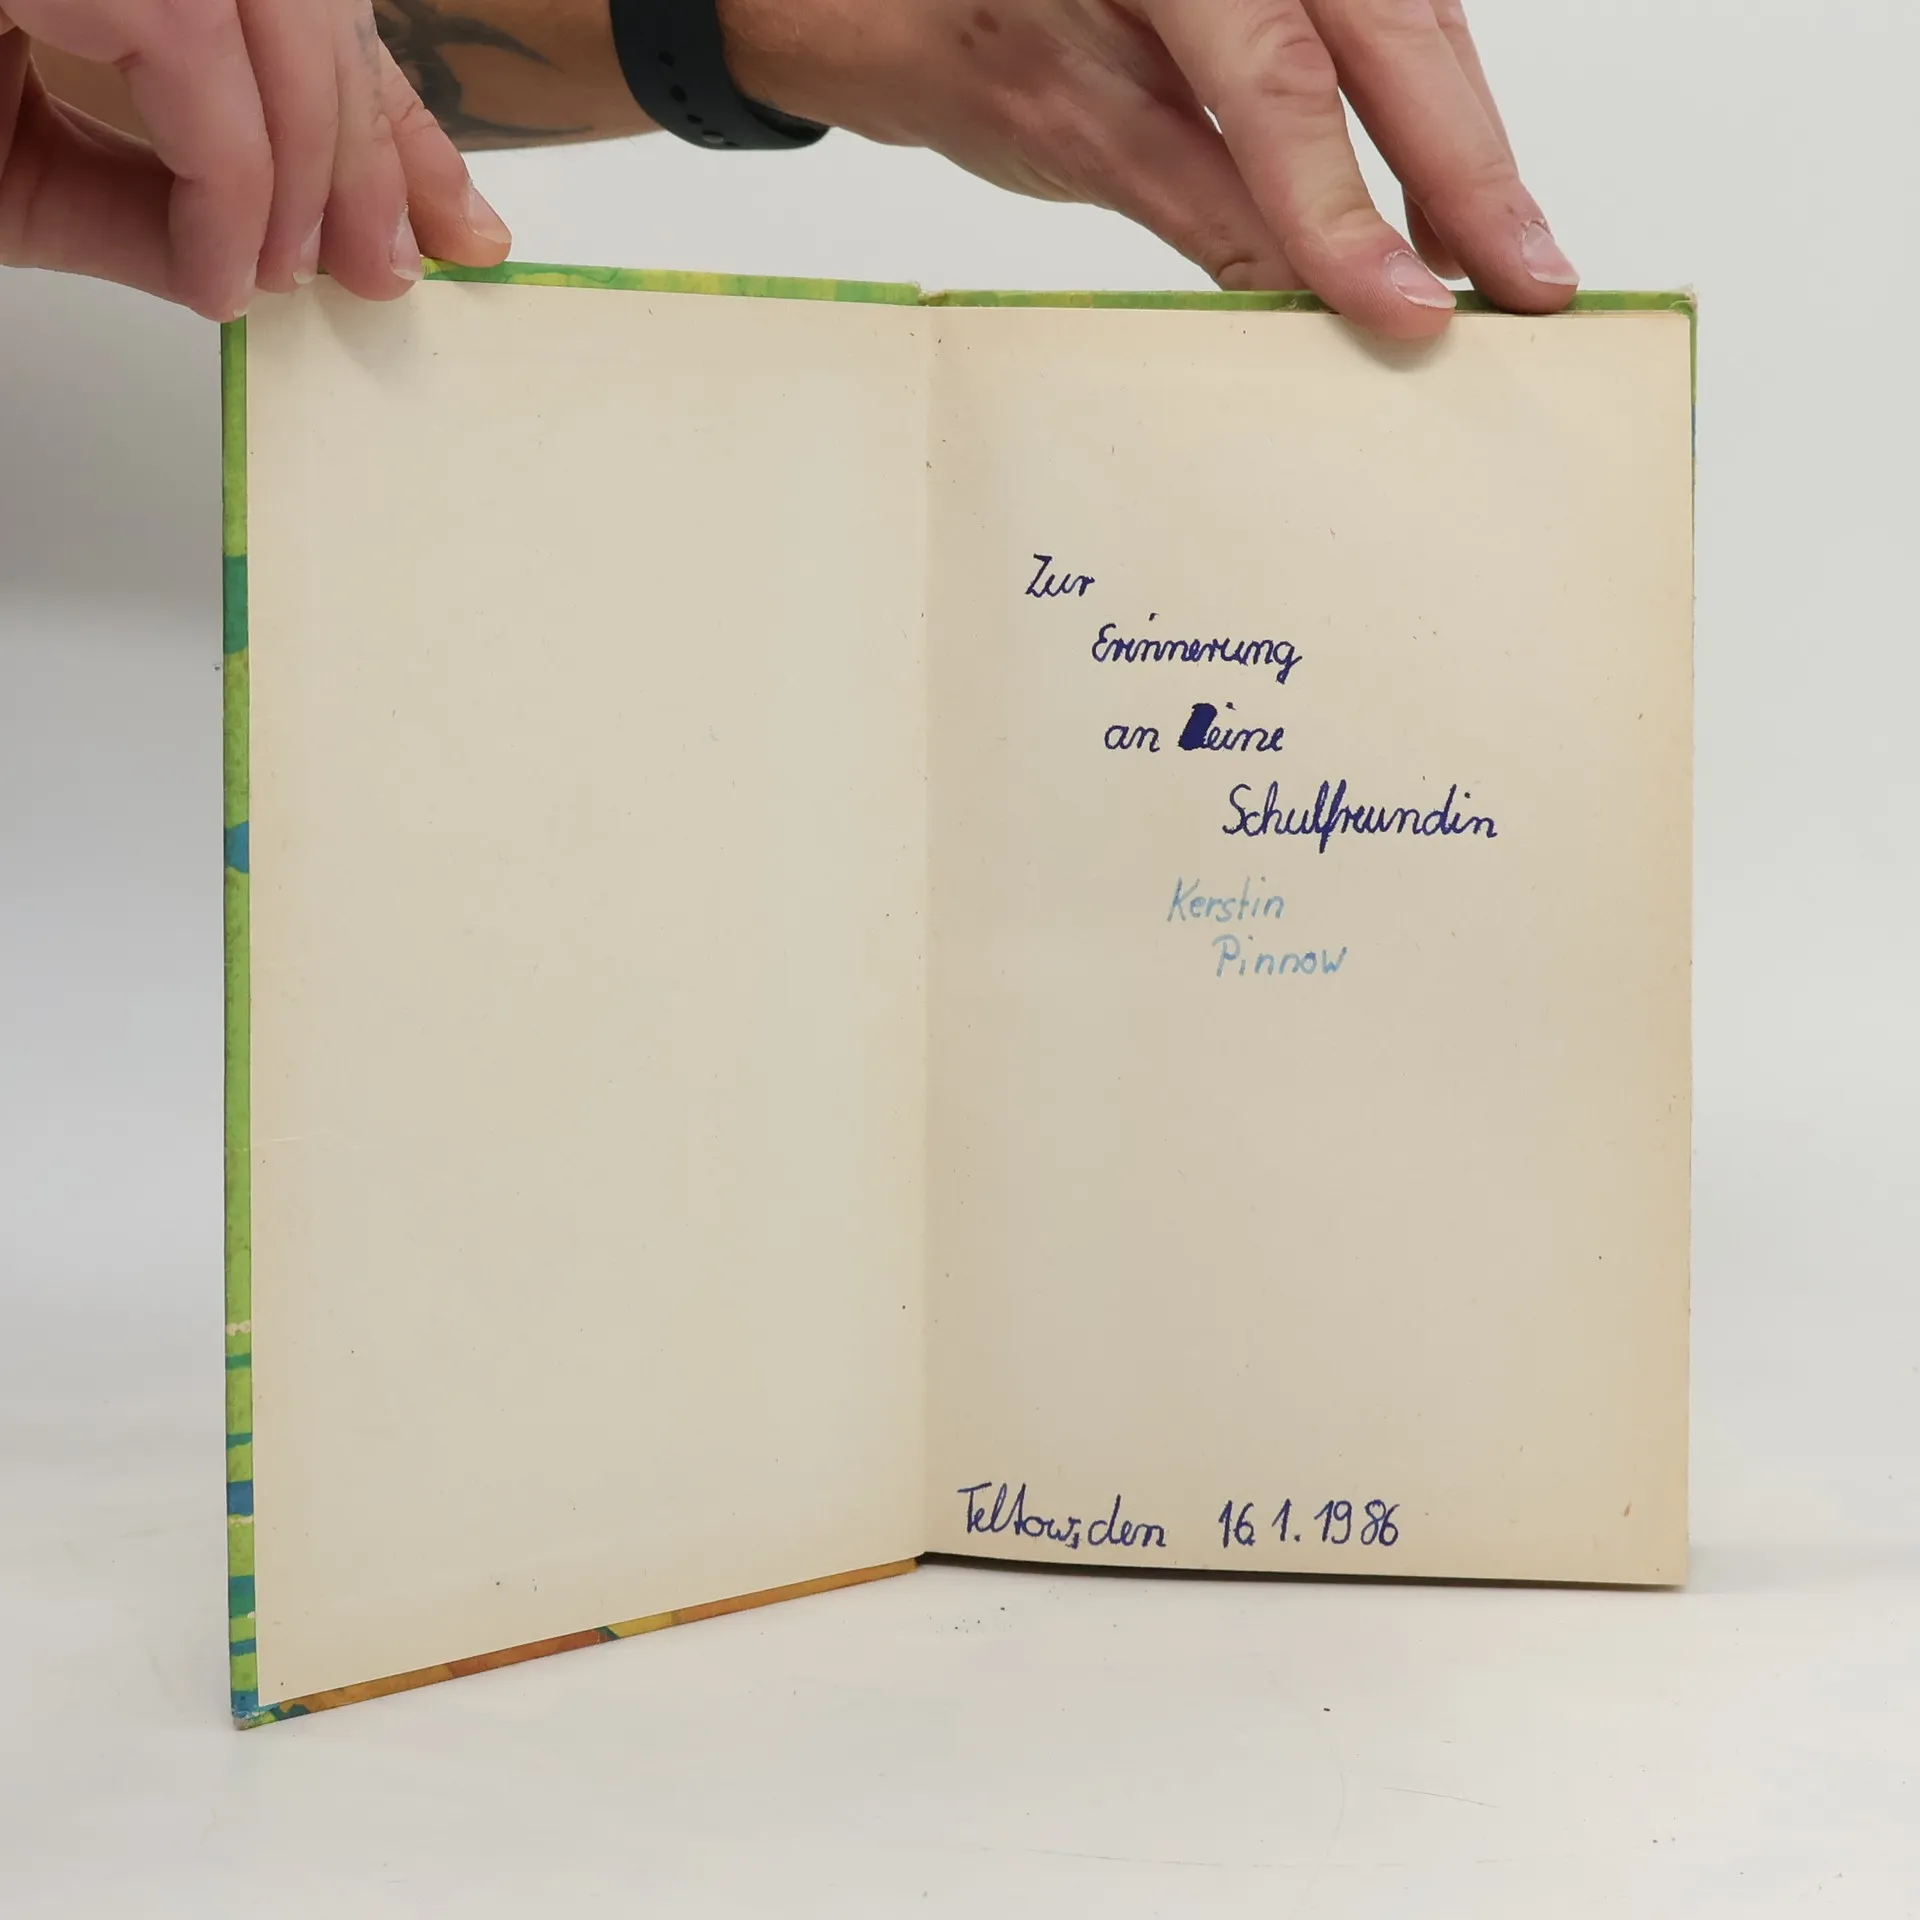 Zur
Erinnerung
an Deine
Schulfreundin
Kerstin
Pinnow
Teltow, den 16.1.1986